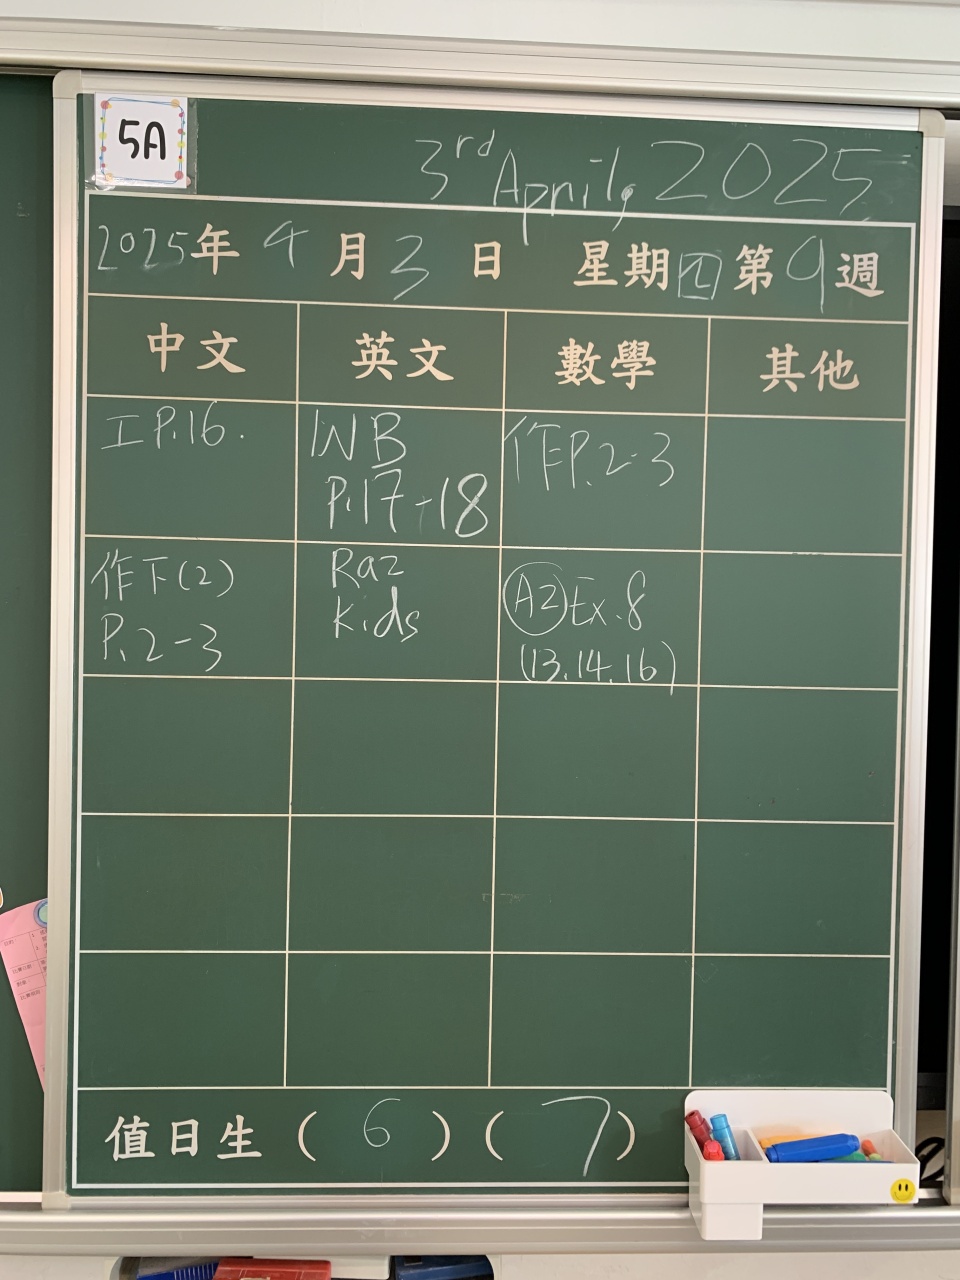 5A
3rd April, 2025
2025年 4月 3日 星期四 第9週
中文 英文 數學 其他
工P.16.
WB
P.17-18
作P.2-3
作下(2)
P.2-3
Raz
Kids
A2 Ex.8
(13.14.16)
值日生 ( 6 ) ( 7 )